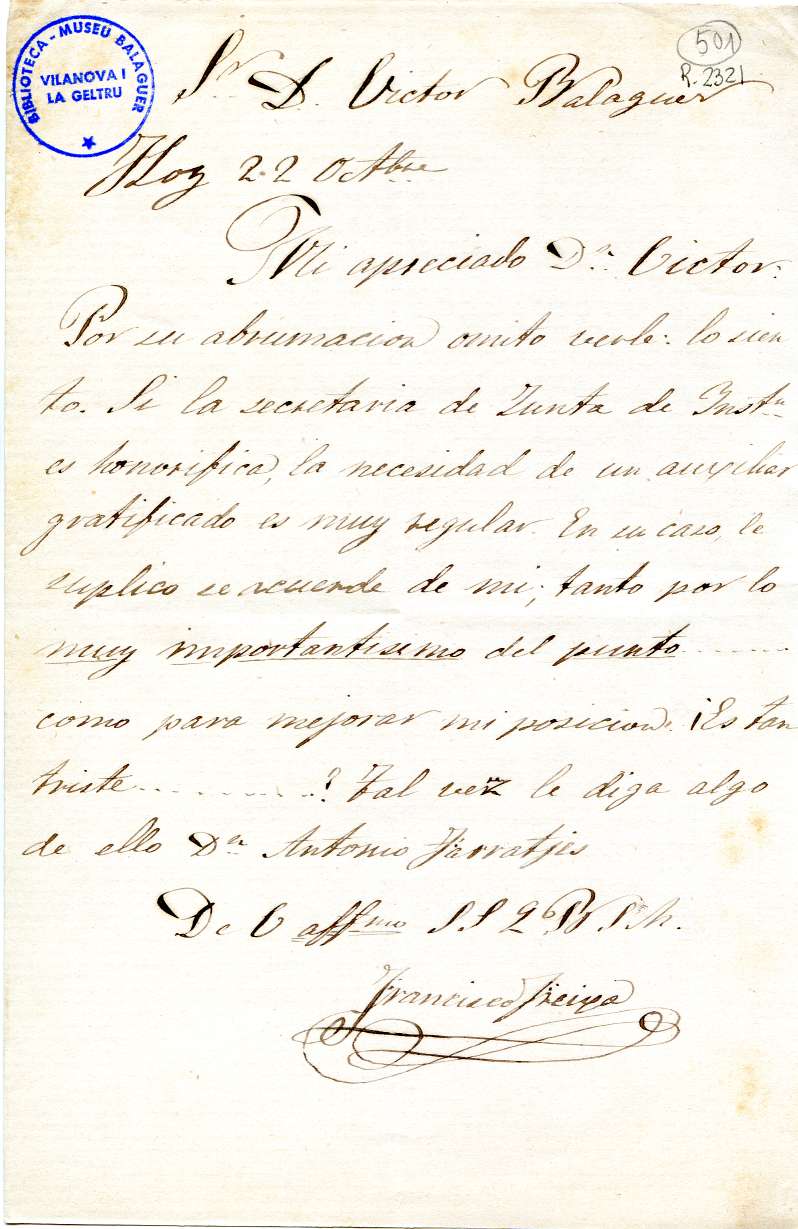 BIBLIOTECA - MUSEU BALAGUER
VILANOVA I
LA GELTRU
501
R. 2321
Sr. D. Victor Balaguer
Hoy 22 Octbre
Mi apreciado Dn. Victor:
Por su abrumacion omito verle: lo sien
to. Si la secretaria de Junta de Instn
es honorifica, la necesidad de un auxiliar
gratificado es muy regular. En su caso, le
suplico se acuerde de mi; tanto por lo
muy importantisimo del punto ........
como para mejorar mi posicion. ¡Es tan
triste ............? Tal vez le diga algo
de ello Dn Antonio Farratjes
De V affmo S S Q B S M.
Francisco Freixa